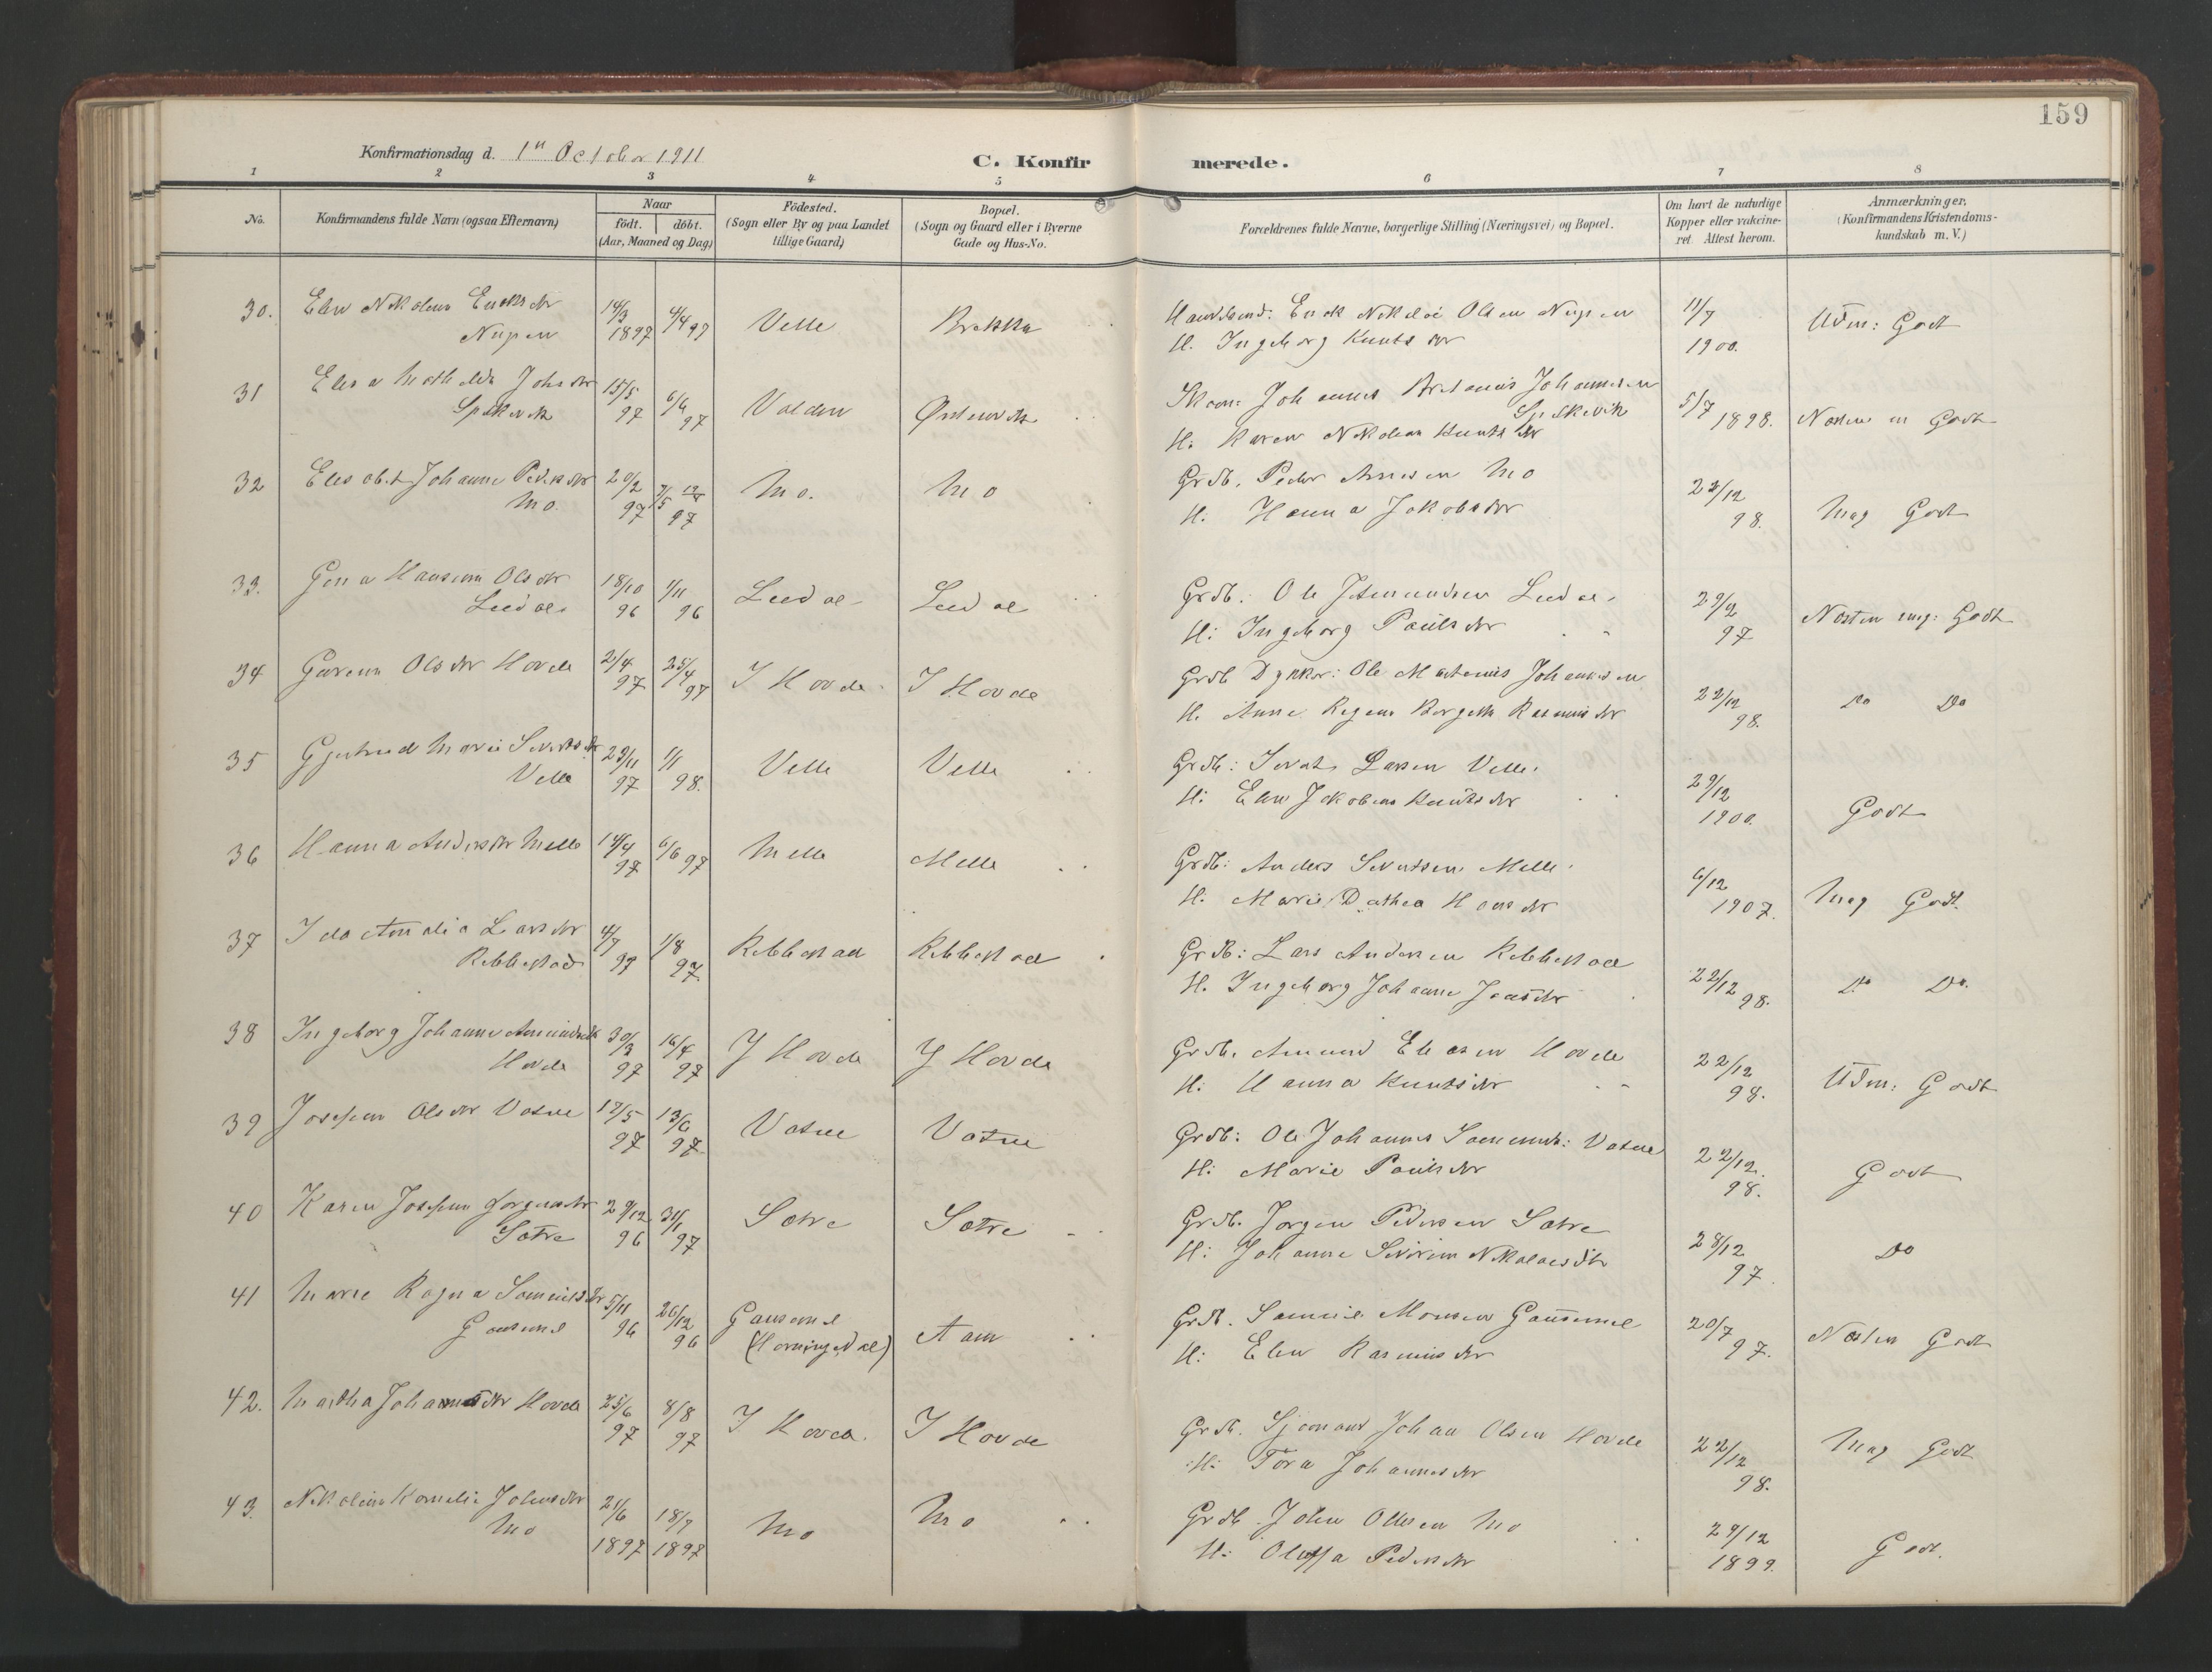 159
Konfirmationsdag d. 1ste October 1911
C. Konfirmerede.
1 2 3 4 5 6 7 8
No.
Konfirmandens fulde Navn (ogsaa Efternavn)
Naar
födt. döbt.
(Aar, Maaned og Dag)
Födested.
(Sogn eller By og paa Landet
tillige Gaard)
Bopæl.
(Sogn og Gaard eller i Byerne
Gade og Hus-No.
Forældrenes fulde Navne, borgerlige Stilling (Næringsvei) og Bopæl.
Om havt de naturlige
Kopper eller vakcine-
ret. Attest herom.
Anmærkninger.
(Konfirmandens Kristendoms-
kundskab m. V.)
30. Elen Nikoline Eriksdtr 14/3 4/4 97 Velle Brekke Erik Nikolai Olsen Nupen 11/7 Udm: Godt
Nupen 1897 H. Ingeborg Knutsdtr 1900.
31 Elisa Mathilde Johsdtr 15/5 6/6 Volden Ørstenvik Johannes Johannesen 5/7 1898. Næsten m Godt
97 97 H. Karen Nikoline Knutsdtr
32 Elisabet Johanne Pedersdtr 20/2 Mo. Mo Grdb. Peder Mo 23/12 Meg Godt
Mo. 97 97 H. Hanna Jakobsdtr 98.
33. Gina Hansine Olsdtr 18/10 1/11 Grdb: Ole 29/9 Næsten mg: Godt
96 96 H: Ingeborg Paulsdtr 97
34 Olsdtr Hovde 2/4 25/4 I Hovde I Hovde Grdb Ole Martinus Johannesen 22/12 Do Do
97 97 H. Anne Rasmusdtr 98.
35 Gjertrud Marie Sivertsdtr 29/11 1/1 Velle Velle Grdb: Sivert Larsen Velle. 29/12
Velle 97 98. H: Elen Jakobine Knutsdtr 1900. Godt
36 Hanna Andersdtr Melle 14/4 6/6 97 Melle Melle Grdb: Anders Sivertsen Melle. 6/12 Meg Godt.
97 H. Marie Dothea Hansdtr 1907.
37 Ida Amalia Larsdtr 4/7 1/8 Ribbestad Ribbestad Grdb: Lars Andersen Ribbestad 22/12 Do Do.
Ribbestad 97 97. H. Ingeborg Johanne Jensdtr 98.
38 Ingeborg Johanne Amundsdtr 30/3 16/4 I Hovde I Hovde Grdb. Amund Eliasen Hovde 22/12 Udm: Godt
Hovde 97 97 H: Hanna Knutsdtr 98.
39 Josefine Olsdtr Vatne 17/5 13/6 Vatne Vatne Grdb: Ole Johannes Vatne 22/12. Godt
97 97 H: Marie Paulsdtr 98.
40 Karen Josefine Jørgensdtr 29/12 31/1 Sætre Sætre Grdb. Jørgen Pedersen Sætre 28/12 Do
Sætre 96 97 H: Johanne Severine Nikolaisdtr 97.
41 Marie Ragna Samuelsdtr 5/11 26/12 Gausemel Aam Grdb. Samuel Monsen Gausemel 20/7 Næsten Godt
Gausemel 96 96 (Horningdal) H: Elen Rasmusdtr 97.
42. Martha Johansdtr Hovde 25/6 8/8 I Hovde. I Hovde Grdb. Sjömand Johan Olsen Hovde 22/12 Meg Godt
97 97 H: Tora Johannesdtr 98.
43. Nikoline Kornelie Johnsdtr 21/6 18/7 Mo Mo Grdb. John Mo 29/12 Godt.
Mo 1897 1897 H: Oluffa Pedersdtr 1899.